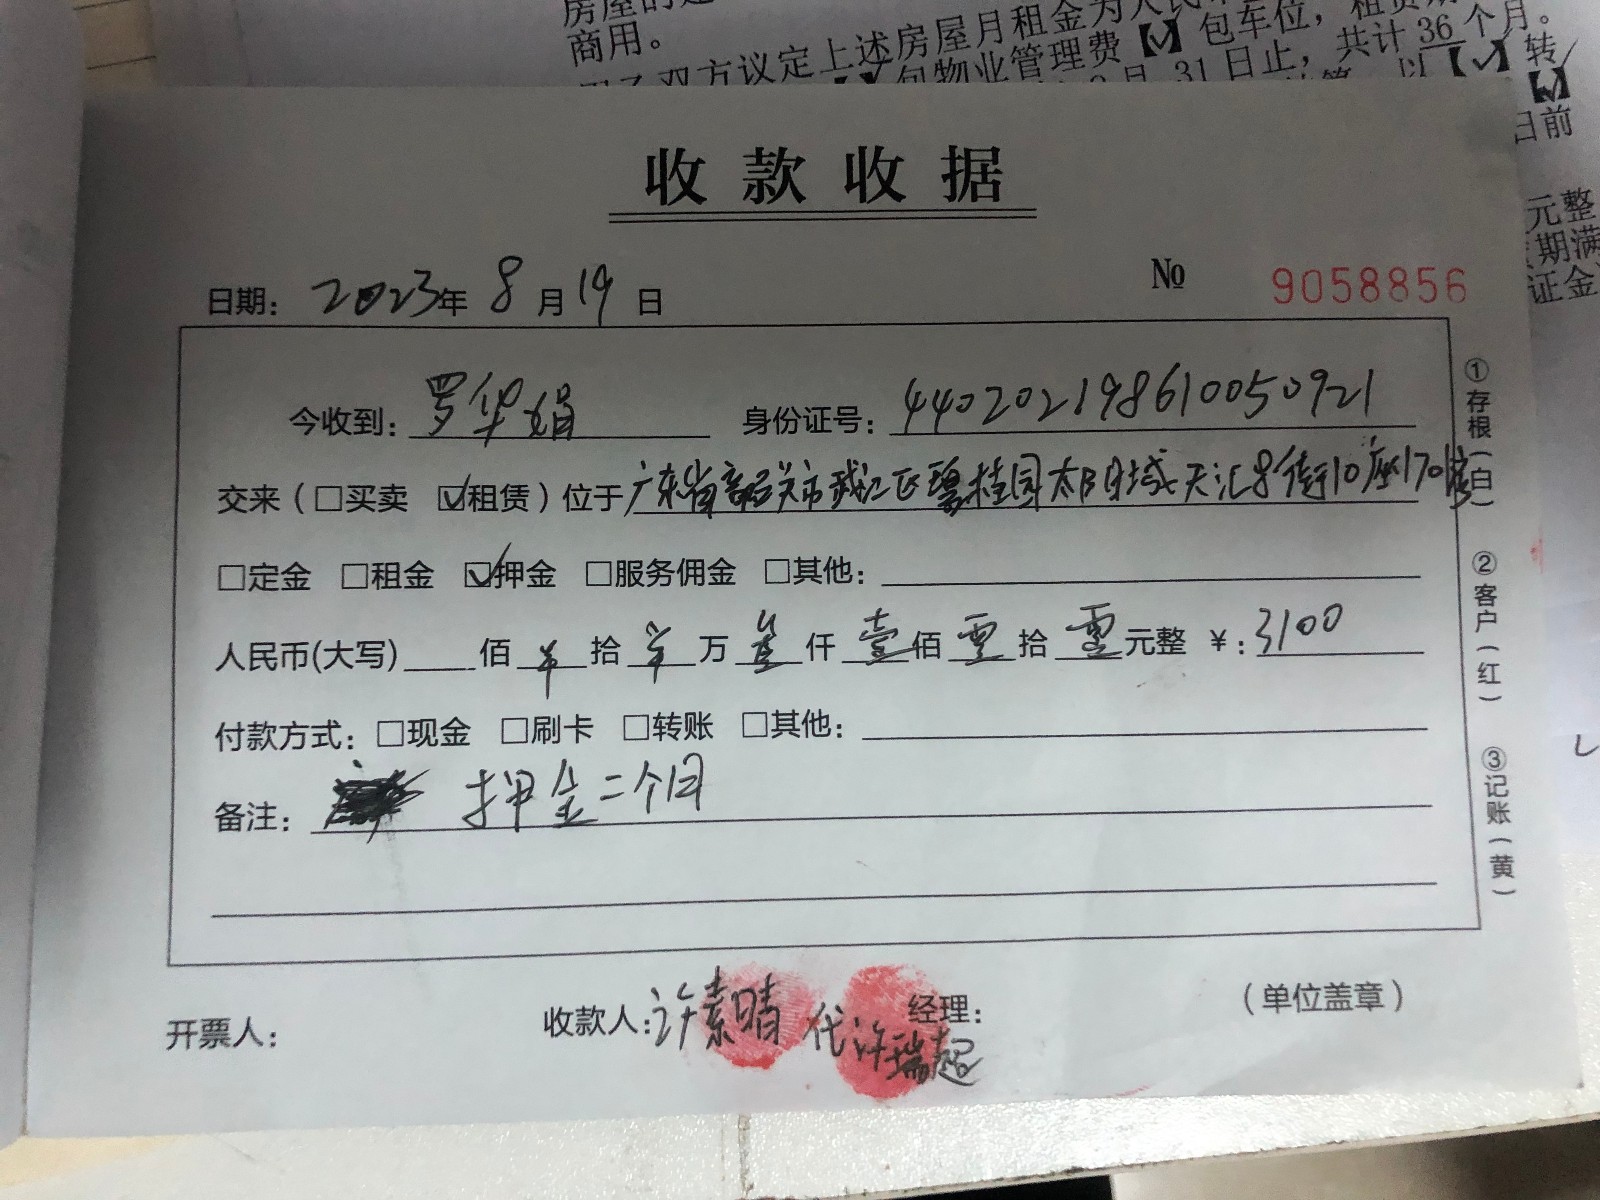 商用。
双方议定上述房屋月租金为人民
包物业管理费【√】包车位，租赁期
31日止，共计36个月。
以【√】转
日前
元整
期满
证金
收款收据
日期：2023年8月19日 № 9058856
今收到：罗华娟 身份证号：440202198610050921
交来（□买卖 ☑租赁）位于广东省韶关市武江区碧桂园太阳城天汇8街10座1701房
□定金 □租金 ☑押金 □服务佣金 □其他：
人民币(大写) 佰 拾 万 叁仟 壹佰 零拾 零元整 ￥：3100
付款方式：□现金 □刷卡 □转账 □其他：
备注： 押金二个月
开票人： 收款人：许素晴 代许瑞超 经理： （单位盖章）
①存根（白）
②客户（红）
③记账（黄）